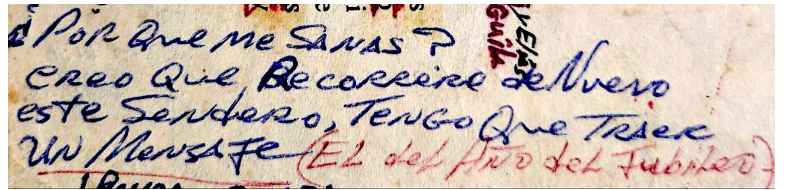 ¿Por Que me SANAS?
creo Que Recorrere de Nuevo
este Sendero, TENGO Que TRAER
UN MENSAJE (EL del Año del Jubileo)